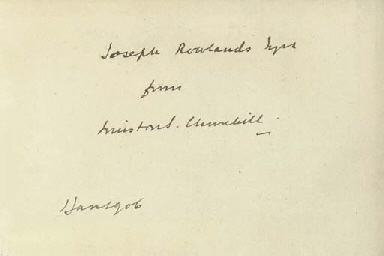 Joseph Rowlands Esqre
from
Winston S. Churchill.
Jan 1906